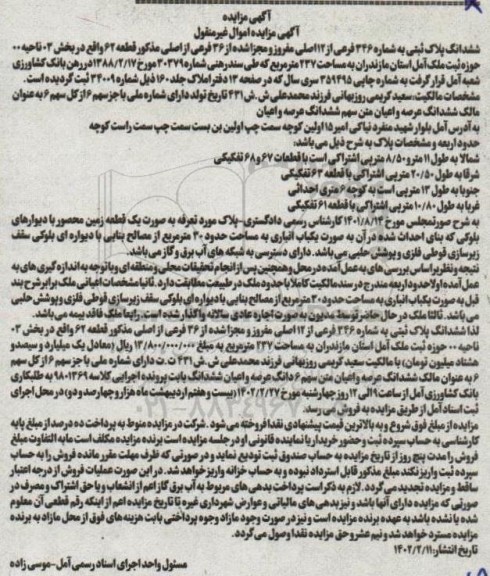 آگهی مزایده
آگهی مزایده اموال غیرمنقول
ششدانگ پلاک ثبتی به شماره ۳۴۶ فرعی از ۱۲اصلی مفروز و مجزا شده از ۳۶ فرعی از اصلی مذکور قطعه ۶۲ واقع در بخش ۰۳ ناحیه ۰۰
حوزه ثبت ملک آمل استان مازندران به مساحت ۲۳۷ مترمربع که طی سند رهنی شماره ۳۰۳۷۹ مورخ ۱۳۸۸/۲/۱۷ در رهن بانک کشاورزی
شعبه آمل قرار گرفت به شماره چاپی ۳۵۹۴۹۵ سری سال که در صفحه ۱۳ دفتر املاک جلد ۱۶۰ ذیل شماره ۳۴۰۰۹ ثبت گردیده است.
مشخصات مالکیت: سعید کریمی روزبهانی فرزند محمدعلی ش.ش ۴۳۱ تاریخ تولد دارای شماره ملی با جز سهم ۶ از کل سهم ۶ به عنوان
مالک ششدانگ عرصه و اعیان متن سهم ششدانگ عرصه و اعیان
به آدرس آمل بلوار شهید منفرد نیاکی امیر ۱۵ اولین کوچه سمت چپ اولین بن بست سمت چپ سمت راست کوچه
حدود اربعه و مشخصات پلاک به شرح ذیل می باشد:
شمالا به طول ۱۱ متر و ۸/۵۰ متر پی اشتراکی است با قطعات ۶۷ و ۶۸ تفکیکی
شرقا به طول ۲۰/۵۰ متر پی اشتراکی با قطعه ۶۳ تفکیکی
جنوبا به طول ۱۳ متر پی است به کوچه ۶ متری احداثی
غربا به طول ۱۰/۸۰ متر پی اشتراکی با قطعه ۶۱ تفکیکی
به شرح صورتمجلس مورخ ۱۴۰۱/۸/۱۴ کارشناس رسمی دادگستری-پلاک مورد تعرفه به صورت یک قطعه زمین محصور با دیوارهای
بلوکی که بنای احداث شده در آن به صورت یکباب انباری به مساحت حدود ۳۰ مترمربع از مصالح بنایی با دیواره ای بلوکی سقف
زیرسازی قوطی فلزی و پوشش حلبی می باشد. دارای دسترسی به شبکه های آب برق و گاز می باشد.
نتیجه و نظر براساس بررسی های به عمل آمده در محل و همچنین پس از انجام تحقیقات محلی و منطقه ای و باتوجه به اندازه گیری های به
عمل آمده اولا حدود اربعه مندرج در سند مالکیت کاملا با حدود ملک در طبیعت مطابقت دارد. ثانیا مشخصات اعیانی ملک برابر شرح بند
قبل به صورت یکباب انباری به مساحت حدود ۳۰ مترمربع از مصالح بنایی با دیواره ای بلوکی سقف زیرسازی قوطی فلزی و پوشش حلبی
می باشد. ثالثا ملک در حال حاضر توسط مدیون به صورت اجاره عادی سالانه واگذار شده است. رابعا ملک فاقد بیمه می باشد.
لذا ششدانگ پلاک ثبتی به شماره ۳۴۶ فرعی از ۱۲ اصلی مفروز و مجزا شده از ۳۶ فرعی از اصلی مذکور قطعه ۶۲ واقع در بخش ۰۳
ناحیه ۰۰ حوزه ثبت ملک آمل استان مازندران به مساحت ۲۳۷ مترمربع به مبلغ ۱۳/۸۰۰/۰۰۰/۰۰۰ ریال (معادل یک میلیارد و سیصد و
هشتاد میلیون تومان) با مالکیت سعید کریمی روزبهانی فرزند محمدعلی ش.ش ۴۳۱ ت.ت دارای شماره ملی با جز سهم ۶ از کل سهم
۶ به عنوان مالک ششدانگ عرصه و اعیان متن سهم ۶ دانگ عرصه و اعیان ششدانگ بابت پرونده اجرایی کلاسه ۹۸۰۱۳۶۹ به طلبکاری
بانک کشاورزی آمل از ساعت ۹ الی ۱۲ روز چهارشنبه مورخ ۱۴۰۲/۲/۲۷ (بیست و هفتم اردیبهشت ماه هزار و چهارصد و دو) در محل اجرای
ثبت اسناد آمل از طریق مزایده به فروش می رسد.
مزایده از مبلغ فوق شروع و به بالاترین قیمت پیشنهادی نقدا فروخته می شود. شرکت در مزایده منوط به پرداخت ده درصد از مبلغ پایه
کارشناسی به حساب سپرده ثبت و حضور خریدار یا نماینده قانونی او در جلسه مزایده است برنده مزایده مکلف است مابه التفاوت مبلغ
فروش را مدت پنج روز از تاریخ مزایده به حساب صندوق ثبت تودیع نماید و در صورتی که ظرف مهلت مقرر مانده فروش را به حساب
سپرده ثبت واریز نکند مبلغ مذکور قابل استرداد نبوده و به حساب خزانه واریز خواهد شد. در این صورت عملیات فروش از درجه اعتبار
ساقط و مزایده تجدید می گردد. لازم به ذکر است پرداخت بدهی های مربوط به آب برق گاز اعم از انشعاب و یا حق اشتراک و مصرف در
صورتی که مزایده دارای آنها باشد و نیز بدهی های مالیاتی و عوارض شهرداری غیره تا تاریخ مزایده اعم از اینکه رقم قطعی آن معلوم
شده یا نشده باشد به عهده برنده مزایده است و نیز در صورت وجود مازاد وجوه پرداختی بابت هزینه های فوق از محل مازاد به برنده
مزایده مسترد خواهد شد و نیم عشر و حق مزایده نقدا وصول می گردد.
تاریخ انتشار: ۱۴۰۲/۲/۱۱
مسئول واحد اجرای اسناد رسمی آمل-موسی زاده